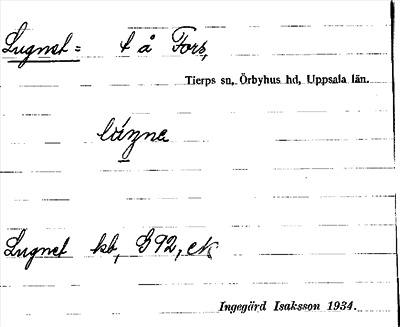 Lugnet= t å Fors,
Tierps sn, Örbyhus hd, Uppsala län.
Lugnet kb, G92, ek
Ingegärd Isaksson 1934.